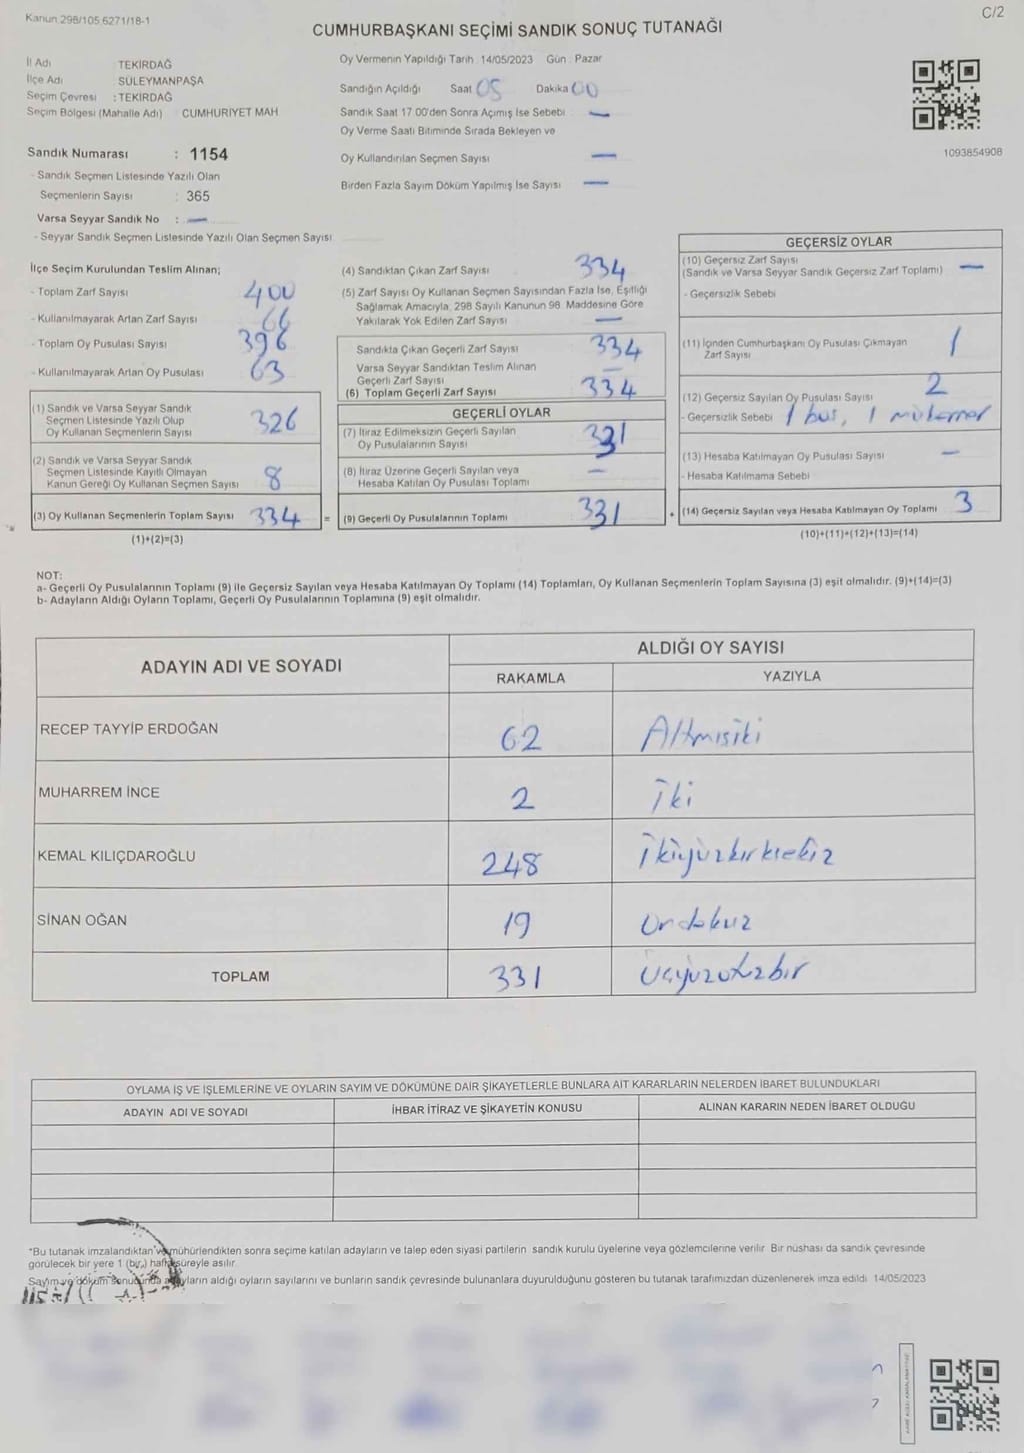 Kanun 298/105 6271/18-1
C/2
CUMHURBAŞKANI SEÇİMİ SANDIK SONUÇ TUTANAĞI
İl Adı : TEKİRDAĞ
İlçe Adı : SÜLEYMANPAŞA
Seçim Çevresi : TEKİRDAĞ
Seçim Bölgesi (Mahalle Adı) : CUMHURİYET MAH
Sandık Numarası : 1154
- Sandık Seçmen Listesinde Yazılı Olan
Seçmenlerin Sayısı : 365
Varsa Seyyar Sandık No : —
- Seyyar Sandık Seçmen Listesinde Yazılı Olan Seçmen Sayısı
Oy Vermenin Yapıldığı Tarih 14/05/2023 Gün Pazar
Sandığın Açıldığı Saat 05 Dakika 00
Sandık Saat 17 00'den Sonra Açımış İse Sebebi —
Oy Verme Saati Bitiminde Sırada Bekleyen ve
Oy Kullandırılan Seçmen Sayısı —
Birden Fazla Sayım Döküm Yapılmış İse Sayısı —
1093854908
İlçe Seçim Kurulundan Teslim Alınan;
- Toplam Zarf Sayısı 400
- Kullanılmayarak Artan Zarf Sayısı 66
- Toplam Oy Pusulası Sayısı 396
- Kullanılmayarak Artan Oy Pusulası 63
(1) Sandık ve Varsa Seyyar Sandık
Seçmen Listesinde Yazılı Olup
Oy Kullanan Seçmenlerin Sayısı 326
(2) Sandık ve Varsa Seyyar Sandık
Seçmen Listesinde Kayıtlı Olmayan
Kanun Gereği Oy Kullanan Seçmen Sayısı 8
(3) Oy Kullanan Seçmenlerin Toplam Sayısı 334 =
(1)+(2)=(3)
(4) Sandıktan Çıkan Zarf Sayısı 334
(5) Zarf Sayısı Oy Kullanan Seçmen Sayısından Fazla İse, Eşitliği
Sağlamak Amacıyla, 298 Sayılı Kanunun 98 Maddesine Göre
Yakılarak Yok Edilen Zarf Sayısı —
Sandıkta Çıkan Geçerli Zarf Sayısı 334
Varsa Seyyar Sandıktan Teslim Alınan
Geçerli Zarf Sayısı —
(6) Toplam Geçerli Zarf Sayısı 334
GEÇERLİ OYLAR
(7) İtiraz Edilmeksizin Geçerli Sayılan
Oy Pusulalarının Sayısı 331
(8) İtiraz Üzerine Geçerli Sayılan veya
Hesaba Katılan Oy Pusulası Toplamı —
(9) Geçerli Oy Pusulalarının Toplamı 331 +
GEÇERSİZ OYLAR
(10) Geçersiz Zarf Sayısı
(Sandık ve Varsa Seyyar Sandık Geçersiz Zarf Toplamı) —
- Geçersizlik Sebebi
(11) İçinden Cumhurbaşkanı Oy Pusulası Çıkmayan
Zarf Sayısı 1
(12) Geçersiz Sayılan Oy Pusulası Sayısı 2
- Geçersizlik Sebebi 1 boş, 1 mükerrer
(13) Hesaba Katılmayan Oy Pusulası Sayısı —
- Hesaba Katılmama Sebebi
(14) Geçersiz Sayılan veya Hesaba Katılmayan Oy Toplamı 3
(10)+(11)+(12)+(13)=(14)
NOT:
a- Geçerli Oy Pusulalarının Toplamı (9) ile Geçersiz Sayılan veya Hesaba Katılmayan Oy Toplamı (14) Toplamları, Oy Kullanan Seçmenlerin Toplam Sayısına (3) eşit olmalıdır. (9)+(14)=(3)
b- Adayların Aldığı Oyların Toplamı, Geçerli Oy Pusulalarının Toplamına (9) eşit olmalıdır.
ADAYIN ADI VE SOYADI
ALDIĞI OY SAYISI
RAKAMLA YAZIYLA
RECEP TAYYİP ERDOĞAN 62 Altmışiki
MUHARREM İNCE 2 İki
KEMAL KILIÇDAROĞLU 248 İkiyüzkırksekiz
SİNAN OĞAN 19 Ondokuz
TOPLAM 331 Üçyüzotuzbir
OYLAMA İŞ VE İŞLEMLERİNE VE OYLARIN SAYIM VE DÖKÜMÜNE DAİR ŞİKAYETLERLE BUNLARA AİT KARARLARIN NELERDEN İBARET BULUNDUKLARI
ADAYIN ADI VE SOYADI İHBAR İTİRAZ VE ŞİKAYETİN KONUSU ALINAN KARARIN NEDEN İBARET OLDUĞU
*Bu tutanak imzalandıktan ve mühürlendikten sonra seçime katılan adayların ve talep eden siyasi partilerin sandık kurulu üyelerine veya gözlemcilerine verilir Bir nüshası da sandık çevresinde
görülecek bir yere 1 (bir) hafta süreyle asılır
Sayım ve döküm sonucunda adayların aldığı oyların sayılarını ve bunların sandık çevresinde bulunanlara duyurulduğunu gösteren bu tutanak tarafımızdan düzenlenerek imza edildi 14/05/2023